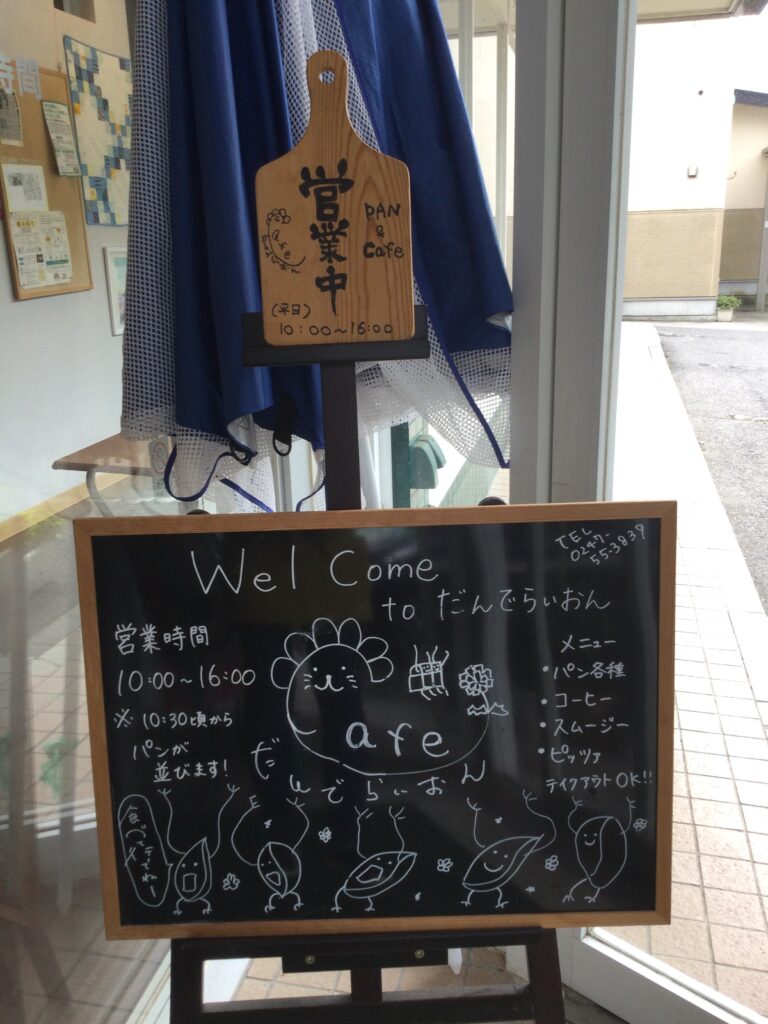 時間
営業中
PAN
&
Cafe
afe
だんでらいおん
(平日)
10:00~16:00
Wel Come
to だんでらぃおん
TEL
0247-
55-3839
営業時間
10:00~16:00
※ 10:30頃から
パンが
並びます!
Cafe
だんでらぃおん
メニュー
・パン各種
・コーヒー
・スムージー
・ピッツァ
テイクアウトOK!!
食べてってねー